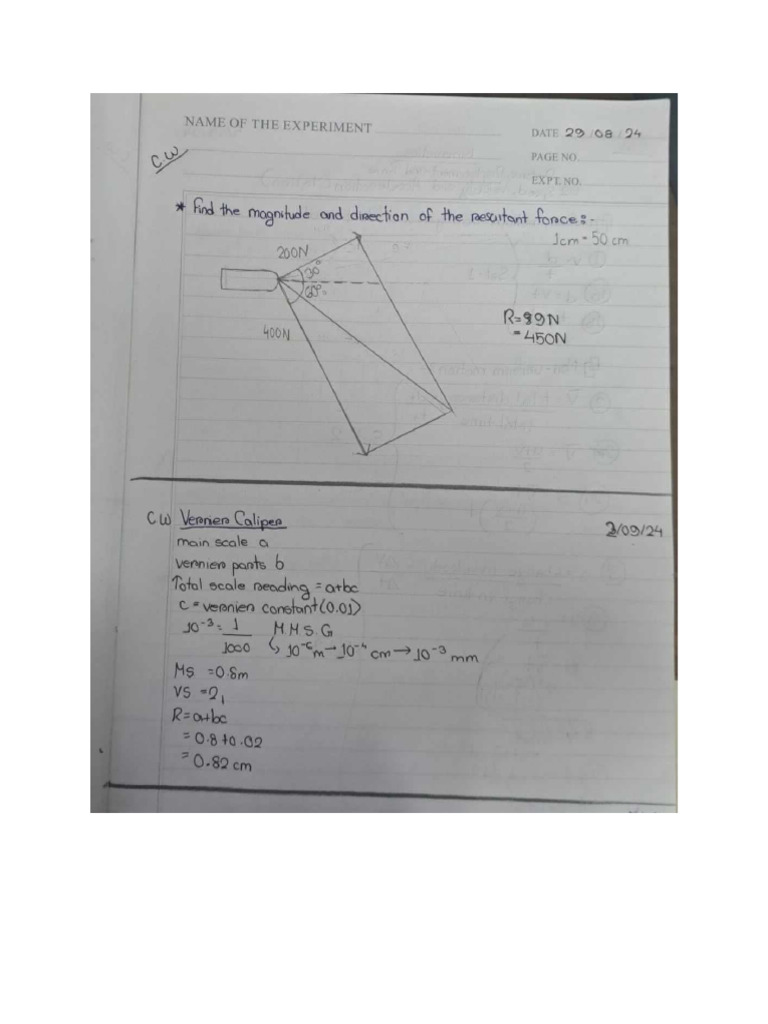 NAME OF THE EXPERIMENT
DATE 29/08/24
PAGE NO.
EXPT. NO.
C.W
* Find the magnitude and direction of the resultant force:-
1cm = 50 cm
200N
30°
60°
400N
R=89N
= 450N
CW Vernier Caliper
2/09/24
main scale a
vernier parts b
Total scale reading = a+bc
c = vernier constant (0.01)
10⁻³ = 1/1000 M.M.S.G
↳ 10⁻⁶m → 10⁻⁴ cm → 10⁻³ mm
MS = 0.8m
VS = 2,
R = a+bc
= 0.8+0.02
= 0.82 cm